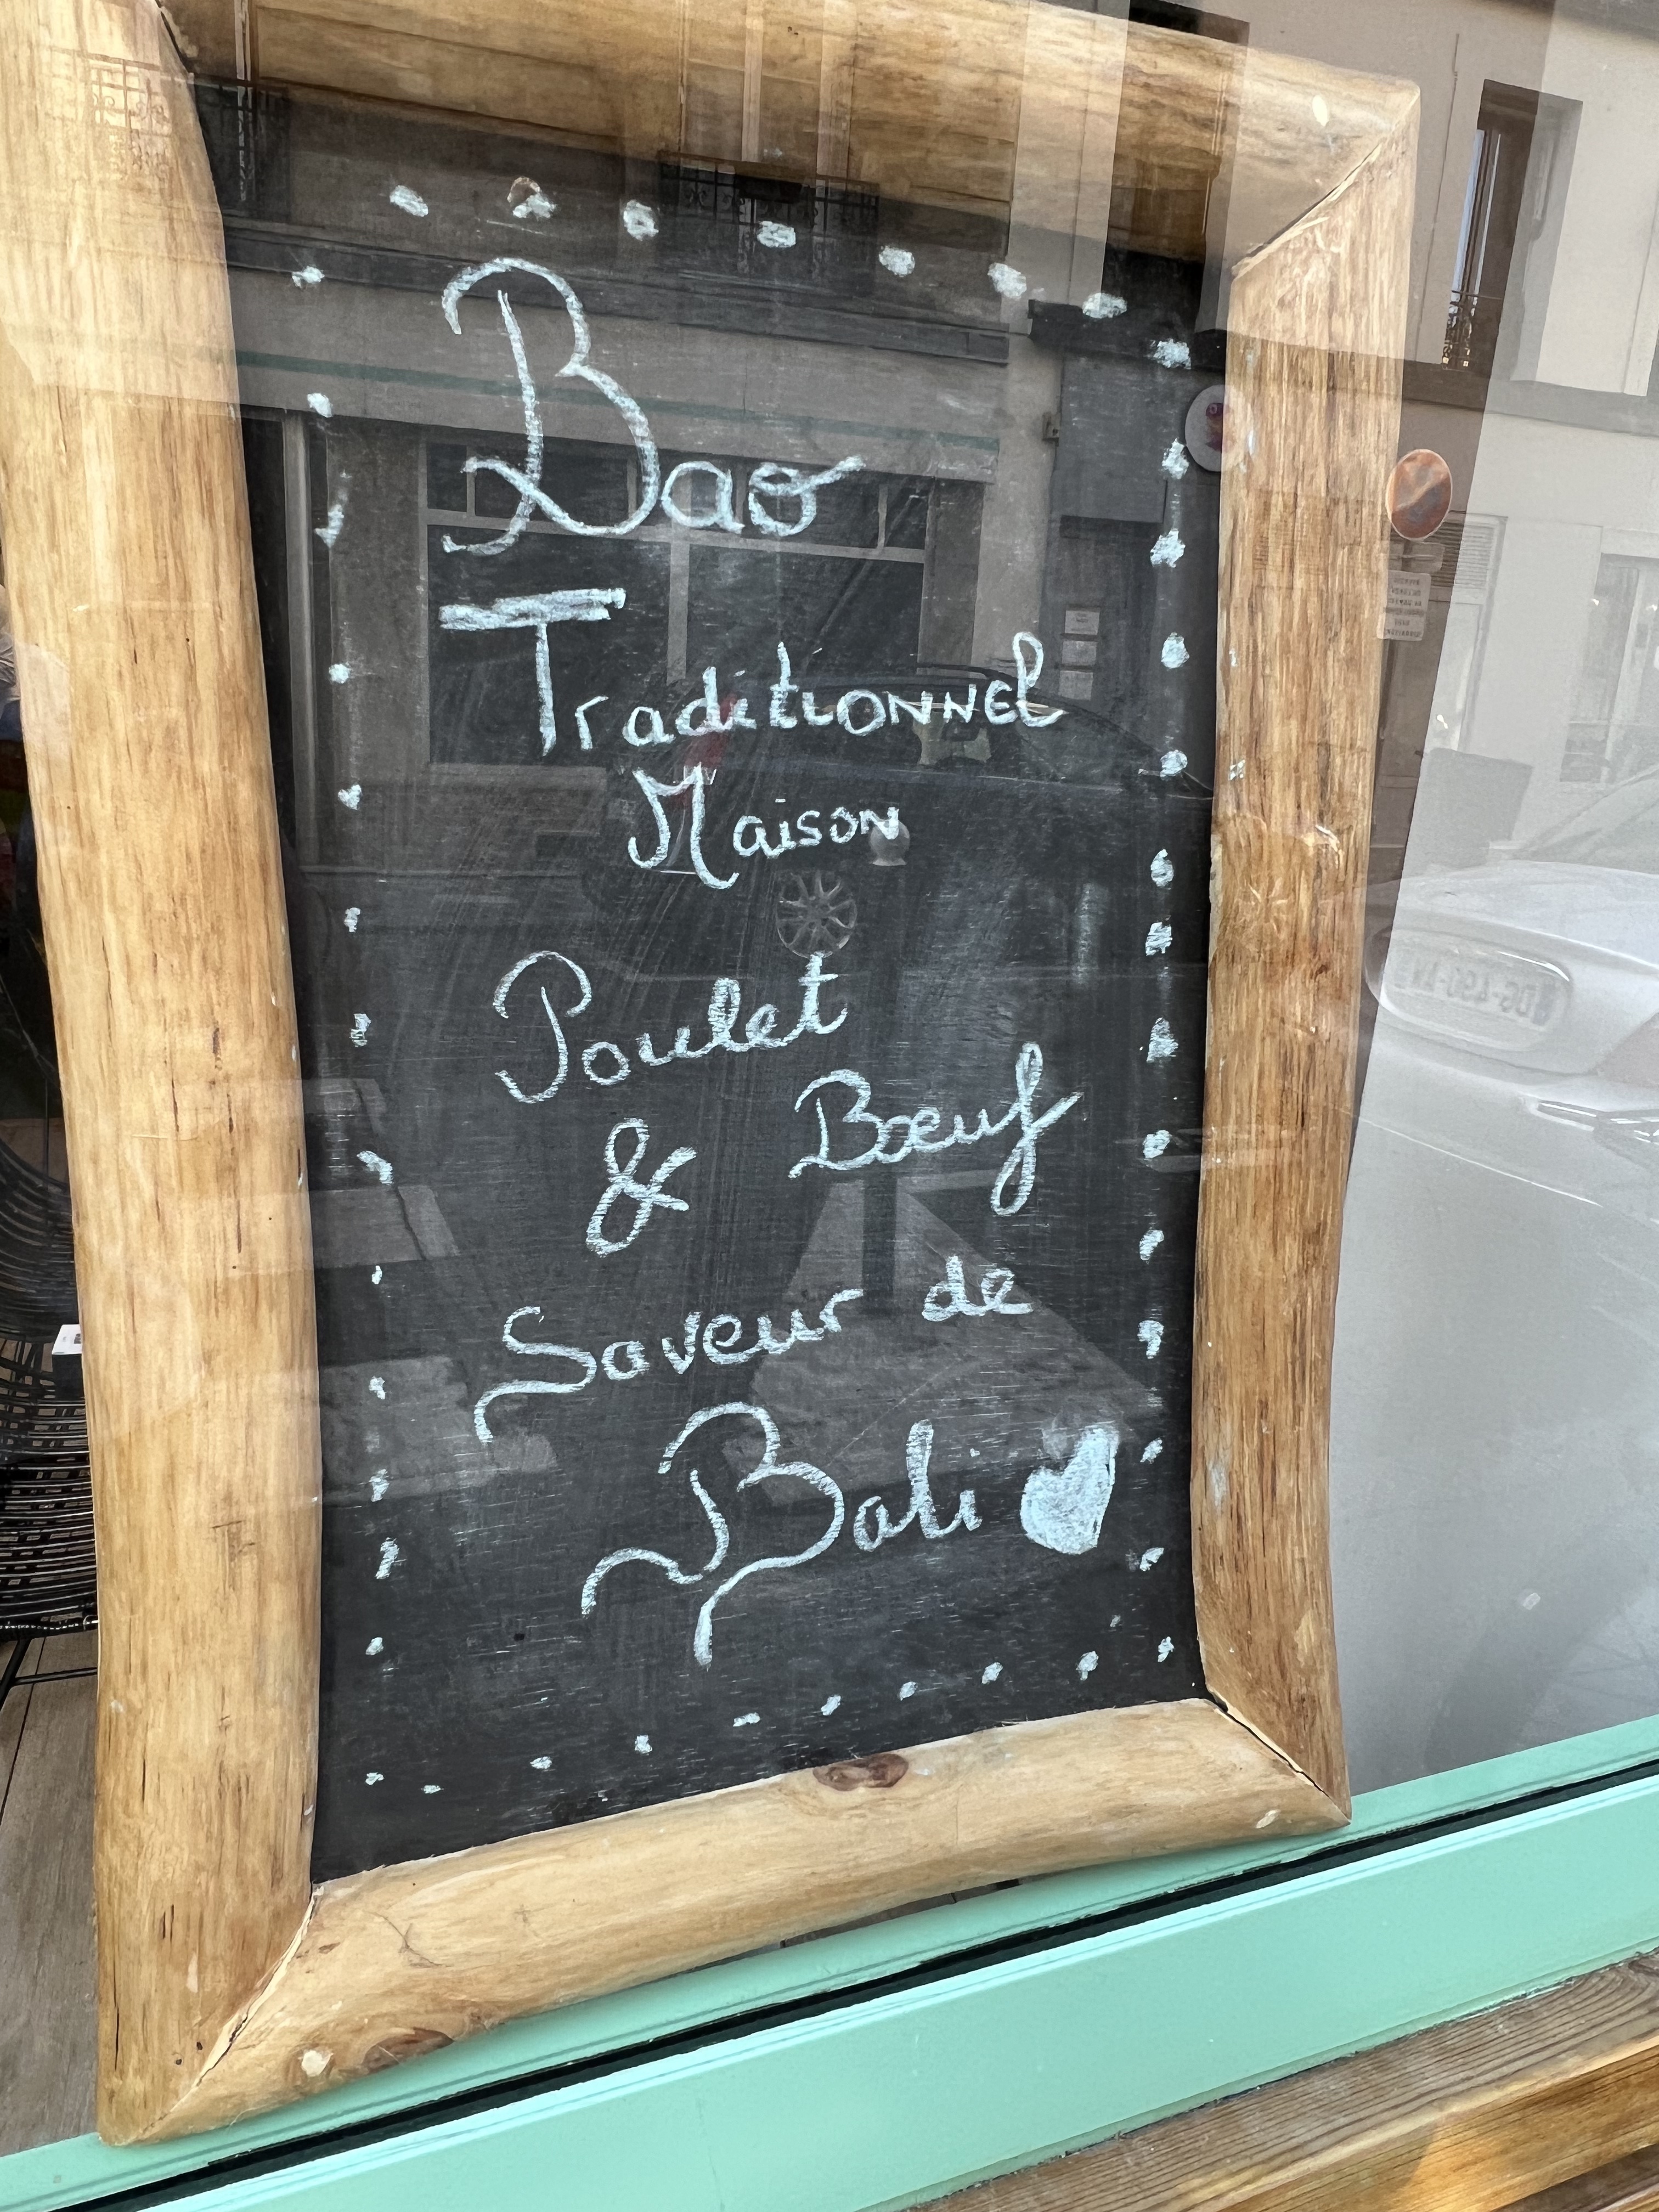 Bao
Traditionnel
Maison
Poulet
& Bœuf
Saveur de
Bali